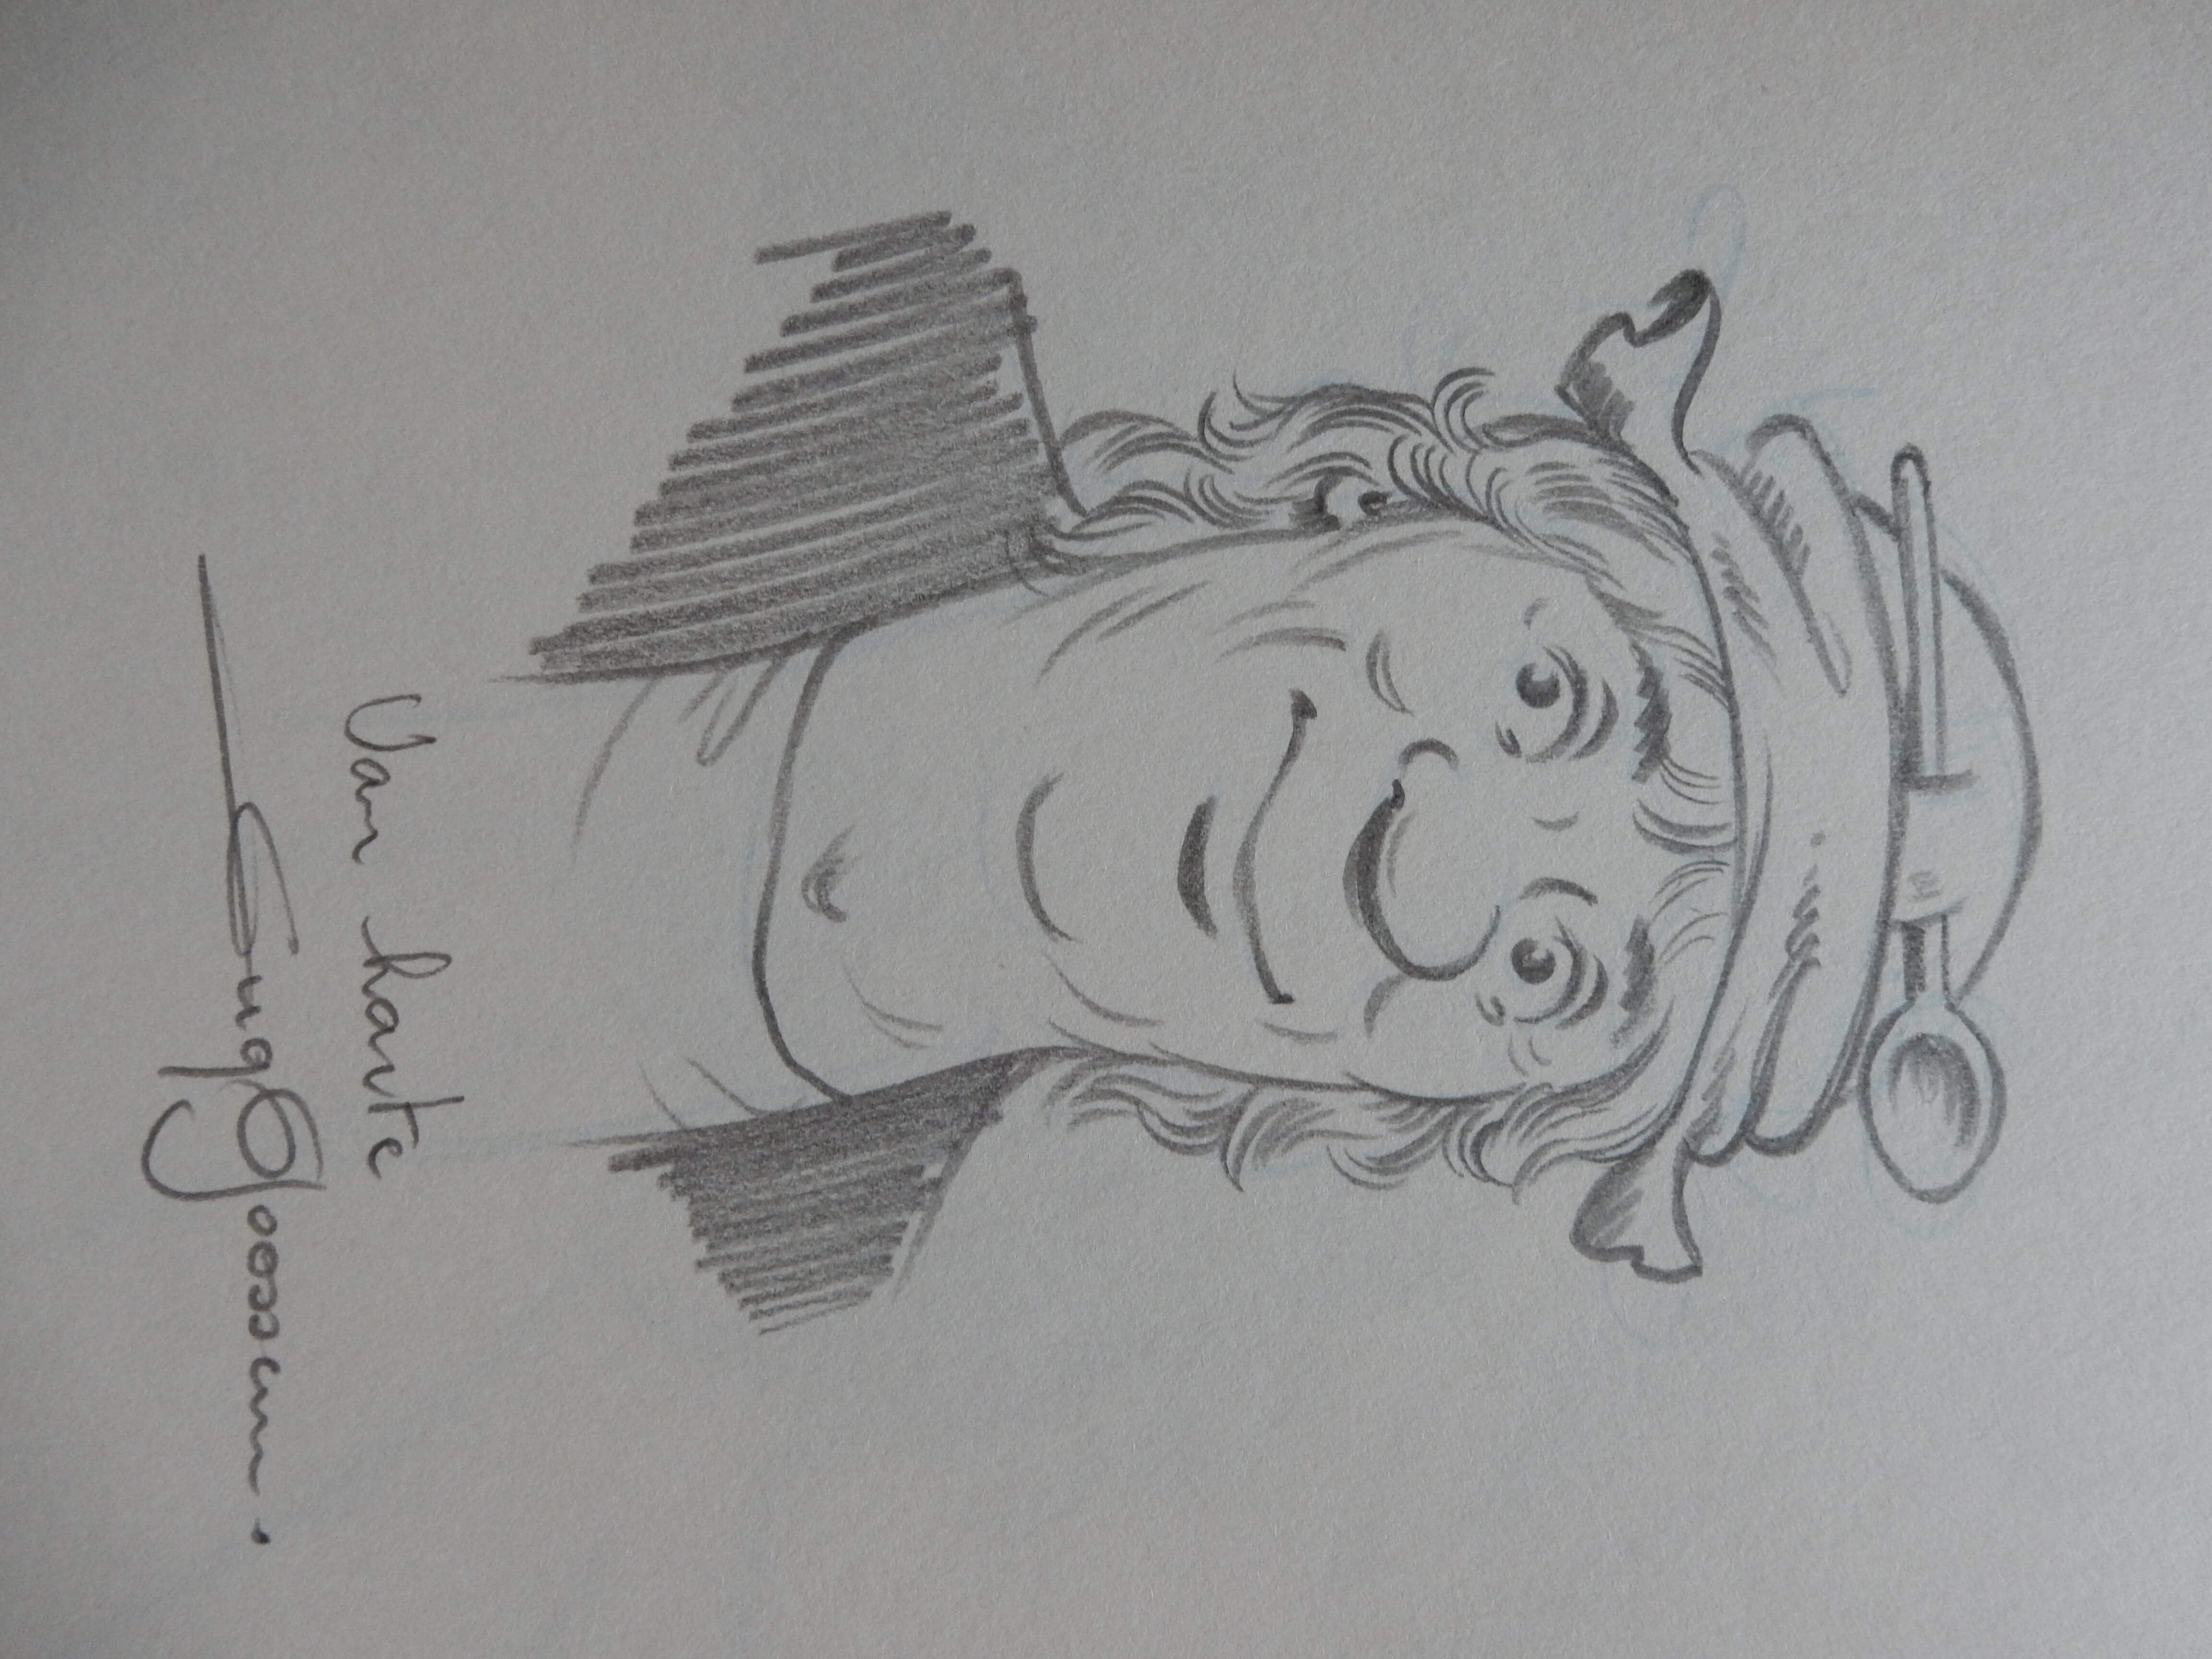 Van harte
Guy Goossens.